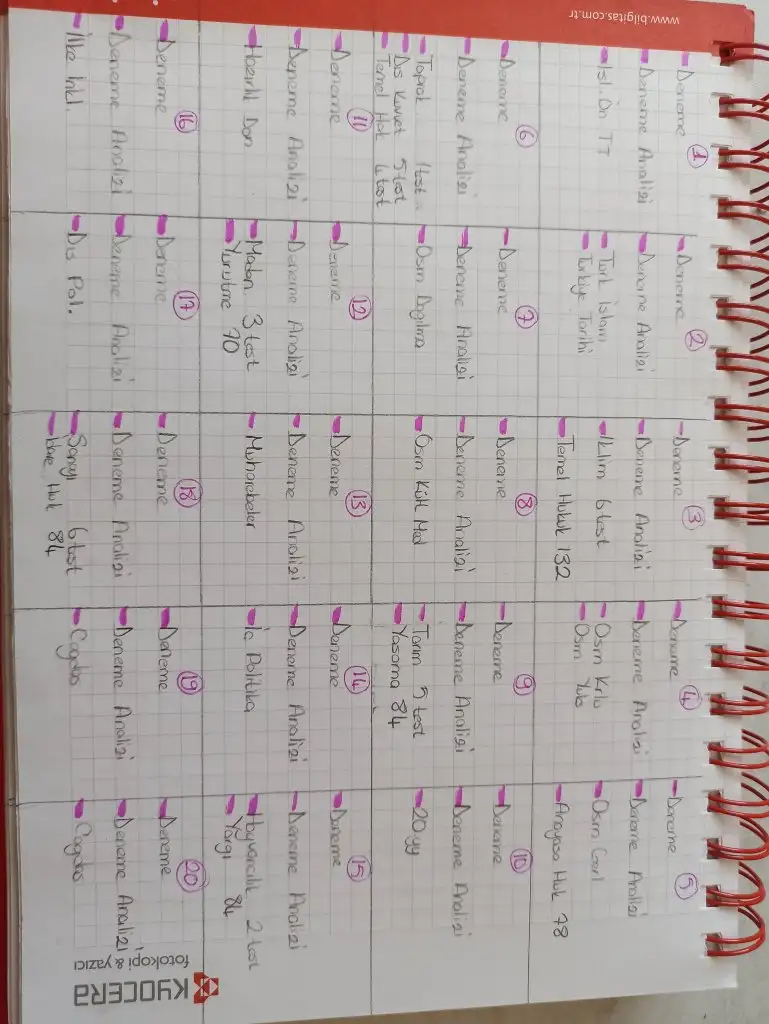 www.bilgitas.com.tr
1
Deneme
Deneme Analizi
Isl. Ön TT
2
Deneme
Deneme Analizi
Türk İslam
Türkiye Tarihi
3
Deneme
Deneme Analizi
İklim 6 test
Temel Hukuk 132
4
Deneme
Deneme Analizi
Osm Krlş
Osm Yük
5
Deneme
Deneme Analizi
Osm Geri
Anayasa Huk 78
6
Deneme
Deneme Analizi
Toprak 1 test
Dış Kuvvet 5 test
Temel Hak 4 test
7
Deneme
Deneme Analizi
Osm Dağılma
8
Deneme
Deneme Analizi
Osm Kült Med
9
Deneme
Deneme Analizi
Tarım 5 test
Yasama 84
10
Deneme
Deneme Analizi
20.yy
11
Deneme
Deneme Analizi
Hazırlık Dön.
12
Deneme
Deneme Analizi
Maden 3 test
Yürütme 70
13
Deneme
Deneme Analizi
Muharebeler
14
Deneme
Deneme Analizi
İç Politika
15
Deneme
Deneme Analizi
Hayvancılık 2 test
Yargı 84
16
Deneme
Deneme Analizi
İlke İnkl.
17
Deneme
Deneme Analizi
Dış Pol.
18
Deneme
Deneme Analizi
Sanayi 6 test
İdare Huk 84
19
Deneme
Deneme Analizi
Çağdaş
20
Deneme
Deneme Analizi
Çağdaş
KYOCERA
fotokopi & yazıcı